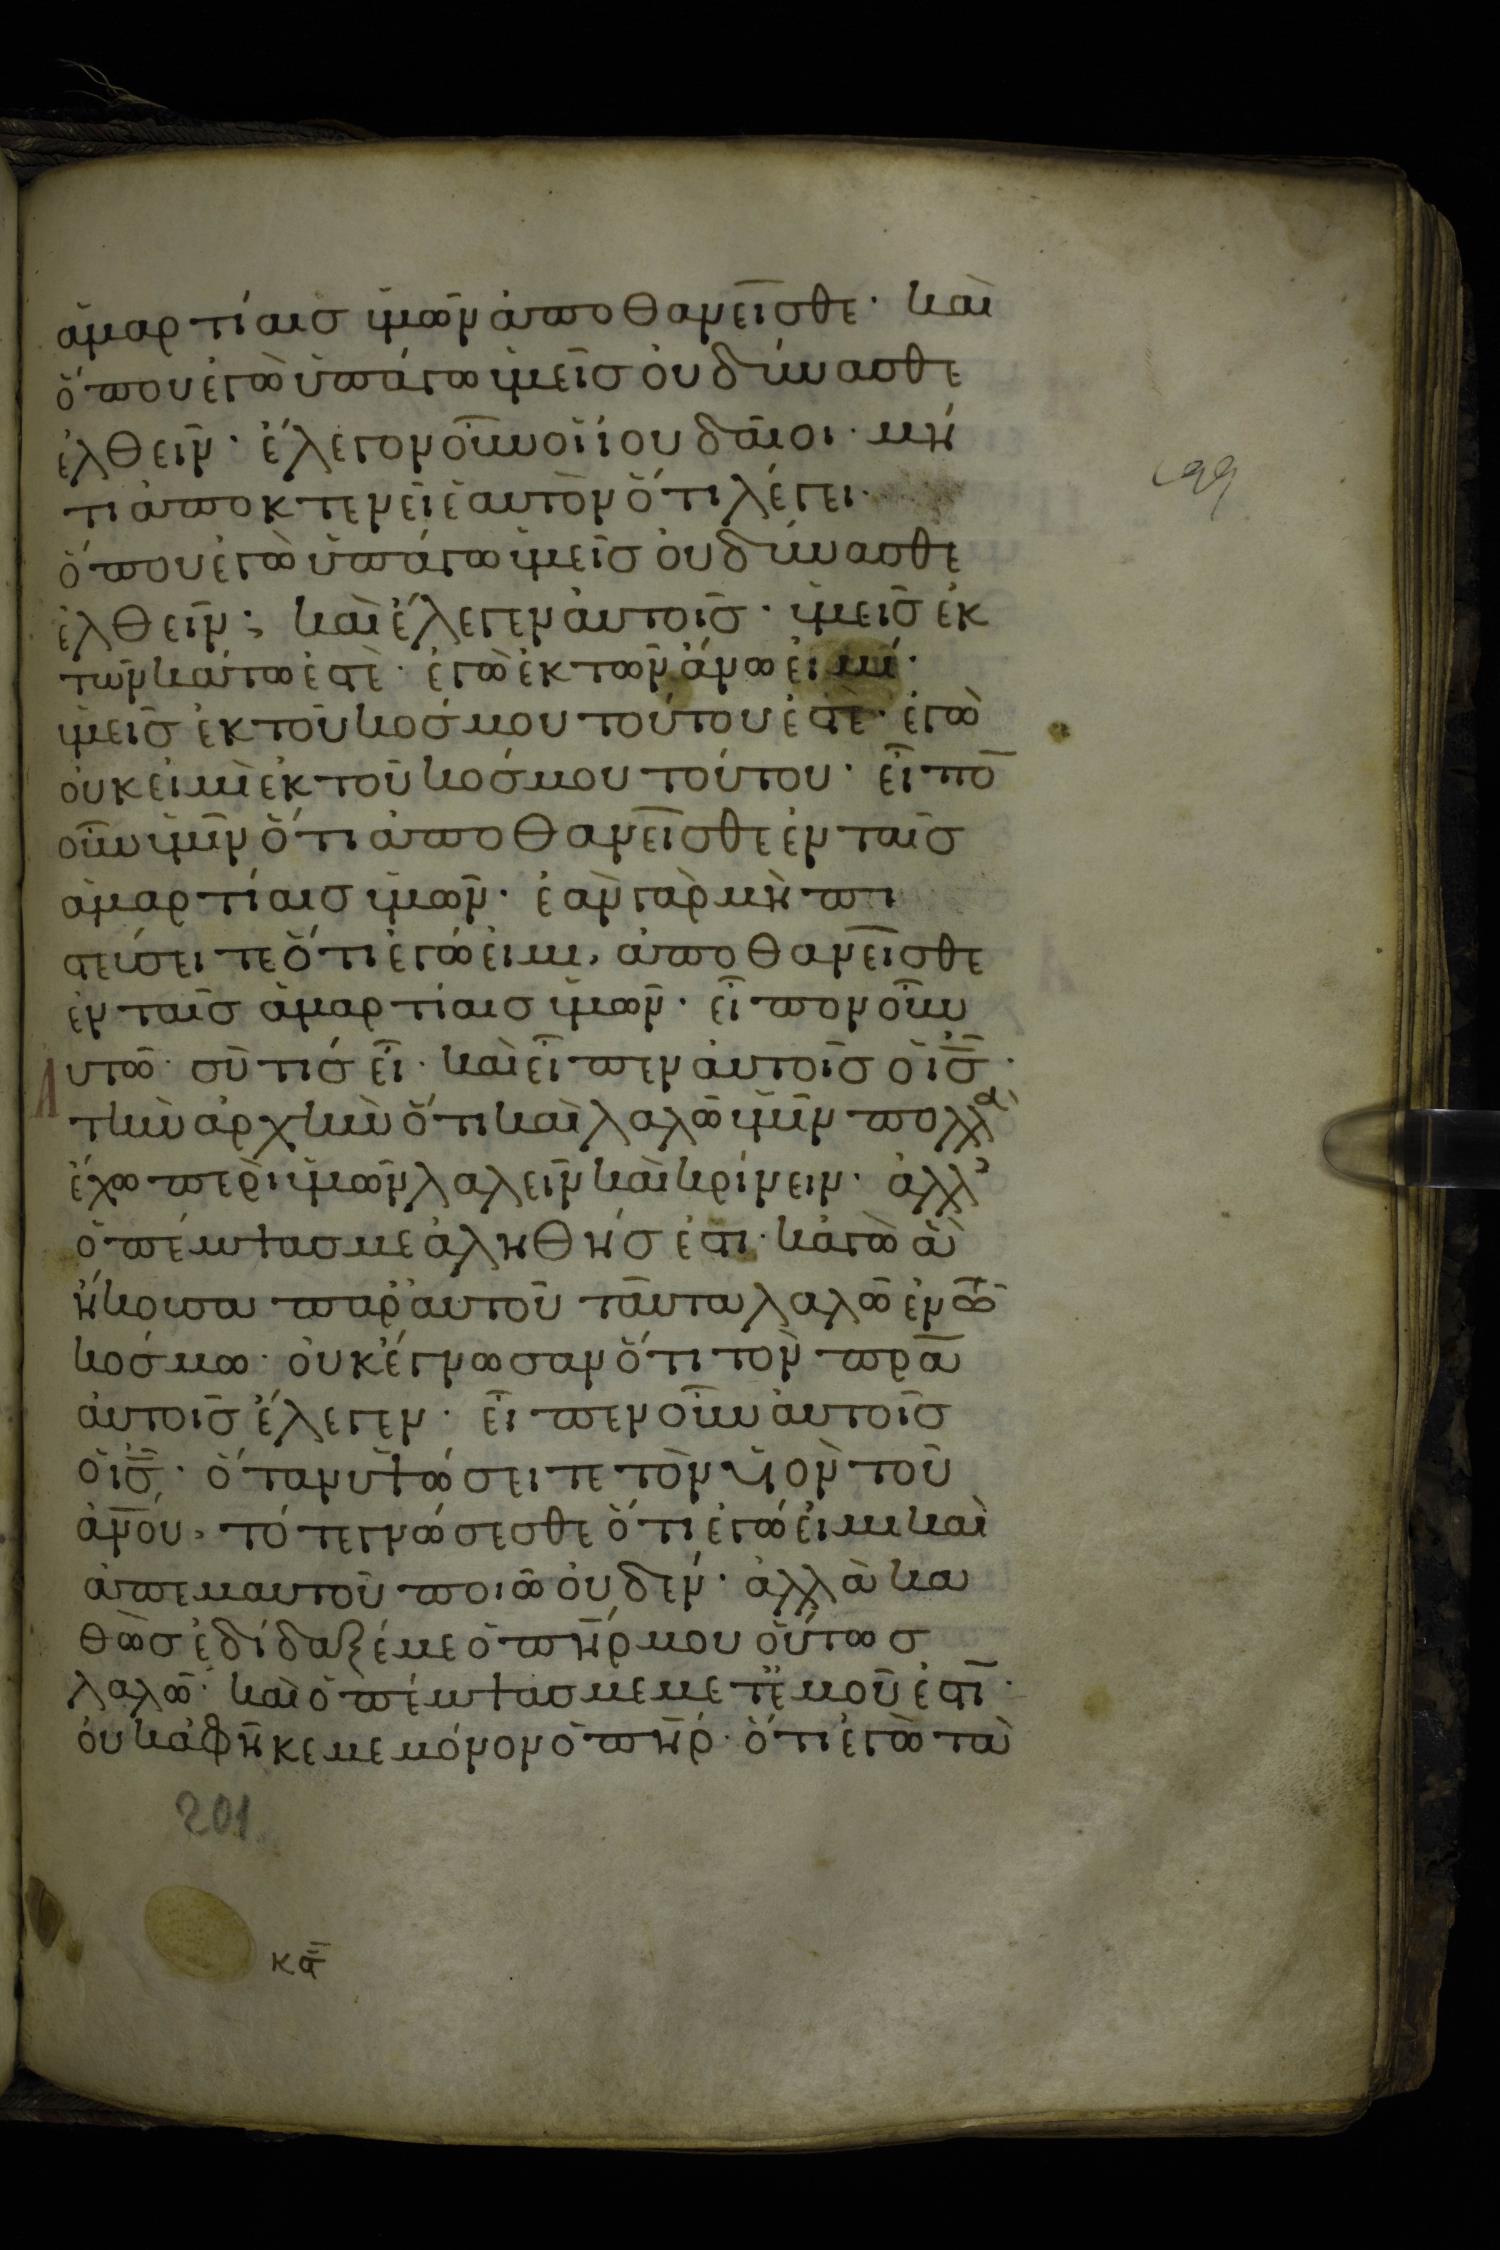 ἁμαρτίαις ὑμῶν ἀποθανεῖσθε· καὶ
ὅπου ἐγὼ ὑπάγω ὑμεῖς οὐ δύνασθε
ἐλθεῖν· ἔλεγον οὖν οἱ ἰουδαῖοι· μή
τι ἀποκτενεῖ ἑαυτὸν ὅτι λέγει·
ὅπου ἐγὼ ὑπάγω ὑμεῖς οὐ δύνασθε
ἐλθεῖν; καὶ ἔλεγεν αὐτοῖς· ὑμεῖς ἐκ
τῶν κάτω ἐστὲ· ἐγὼ ἐκ τῶν ἄνω εἰμί·
ὑμεῖς ἐκ τοῦ κόσμου τούτου ἐστὲ· ἐγὼ
οὐκ εἰμὶ ἐκ τοῦ κόσμου τούτου· εἶπο̅
οὖν ὑμῖν ὅτι ἀποθανεῖσθε ἐν ταῖς
ἁμαρτίαις ὑμῶν· ἐὰν γὰρ μὴ πι
στεύσειτε ὅτι ἐγώ εἰμι, ἀποθανεῖσθε
ἐν ταῖς ἁμαρτίαις ὑμῶν· εἶπον οὖν
υτῶ· σὺ τίς εἶ· καὶ εἶπεν αὐτοῖς ὁ ι̅ς̅·
τὴν ἀρχὴν ὅτι καὶ λαλῶ ὑμῖν πολλὰ
ἔχω περὶ ὑμῶν λαλεῖν καὶ κρίνειν· ἀλλ'
ὁ πέμψας με ἀληθής ἐστι· κἀγὼ ἃ
ἤκουσα παρ' αὐτοῦ ταῦτα λαλῶ ἐν τῶ
κόσμω· οὐκ ἔγνωσαν ὅτι τὸν π̅ρ̅α̅
αὐτοῖς ἔλεγεν· εἶπεν οὖν αὐτοῖς
ὁ ι̅ς̅· ὅταν ὑψώσειτε τὸν υἱὸν τοῦ
α̅ν̅ο̅υ̅, τότε γνώσεσθε ὅτι ἐγώ εἰμι καὶ
ἀπ' ἐμαυτοῦ ποιῶ οὐδέν· ἀλλὰ κα
θὼς ἐδίδαξέ με ὁ π̅η̅ρ̅ μου οὕτως
λαλῶ· καὶ ὁ πέμψας με μετ' ἐμοῦ ἐστῒ·
οὐκ ἀφῆκέ με μόνον ὁ π̅η̅ρ̅· ὅτι ἐγὼ τὰ
201
κϛ̅